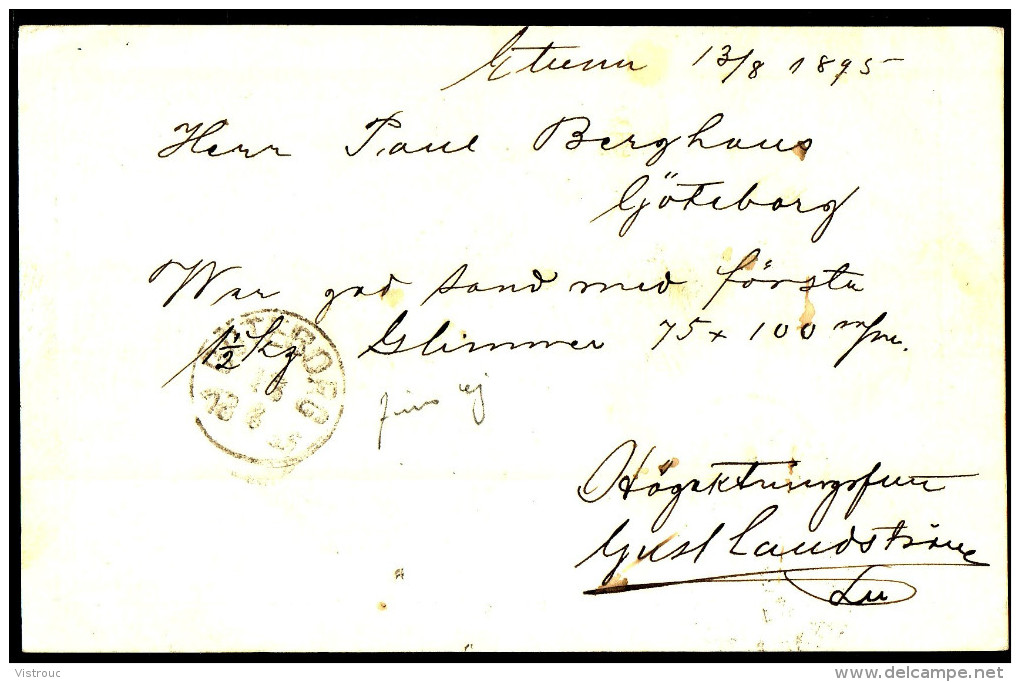 13/8 1895
Herr Paul Berghaus
Göteborg
War god sänd med första
1 1/2 Kg Glimmer 75 x 100 m/m.
finns ej
GÖTEBORG
13
8
Högaktningsfullt
Gust Landström
Vistrouc
delcampe.net